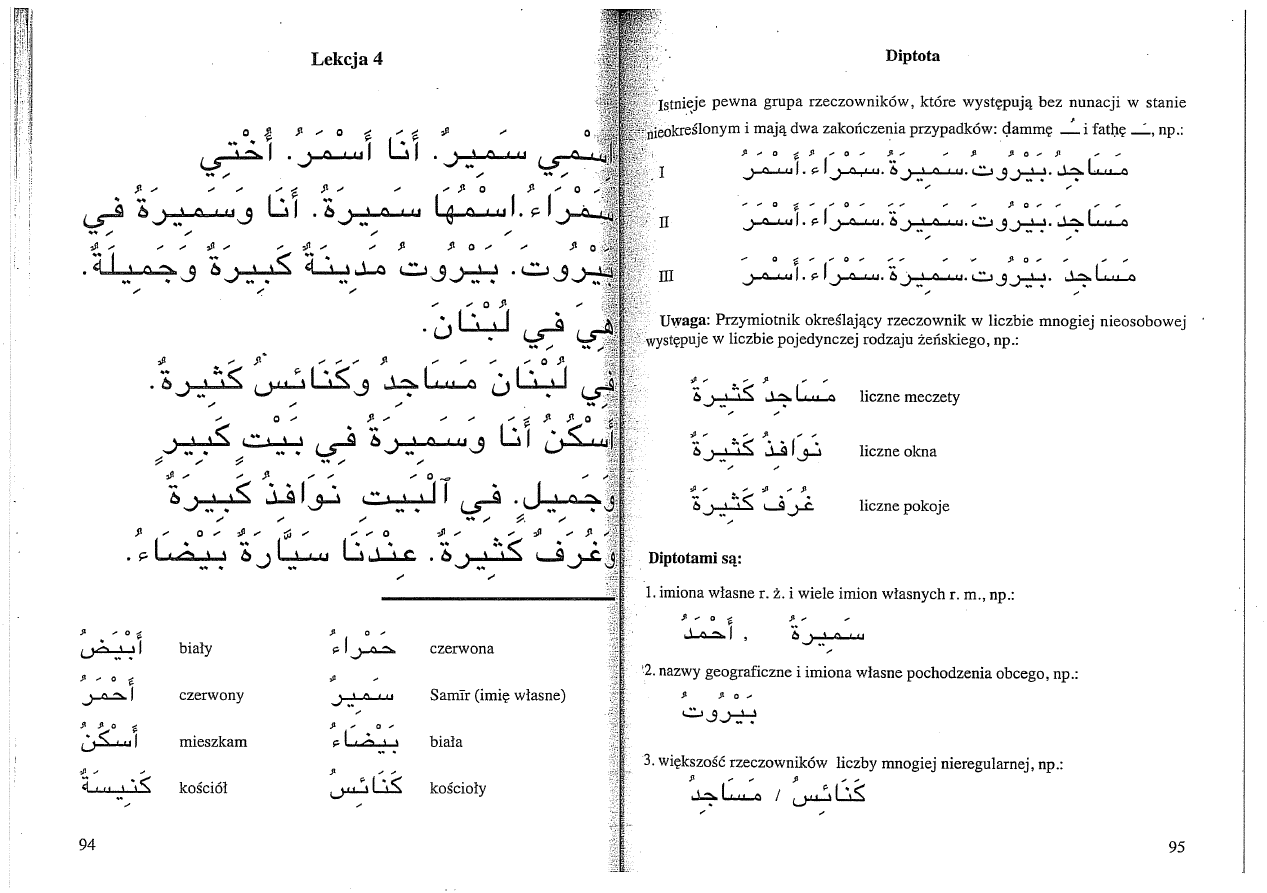 Lekcja 4
اِسْمِي سَمِيرٌ. أَنَا أَسْمَرُ. أُخْتِي
سَمْرَاءُ. اِسْمُهَا سَمِيرَةُ. أَنَا وَسَمِيرَةُ فِي
بَيْرُوتَ. بَيْرُوتُ مَدِينَةٌ كَبِيرَةٌ وَجَمِيلَةٌ.
هِيَ فِي لُبْنَانَ.
فِي لُبْنَانَ مَسَاجِدُ وَكَنَائِسُ كَثِيرَةٌ.
أَسْكُنُ أَنَا وَسَمِيرَةُ فِي بَيْتٍ كَبِيرٍ
وَجَمِيلٍ. فِي ٱلْبَيْتِ نَوَافِذُ كَبِيرَةٌ
وَغُرَفٌ كَثِيرَةٌ. عِنْدَنَا سَيَّارَةٌ بَيْضَاءُ.
أَبْيَضُ biały حَمْرَاءُ czerwona
أَحْمَرُ czerwony سَمِيرٌ Samīr (imię własne)
أَسْكُنُ mieszkam بَيْضَاءُ biała
كَنِيسَةٌ kościół كَنَائِسُ kościoły
94
Diptota
Istnieje pewna grupa rzeczowników, które występują bez nunacji w stanie
nieokreślonym i mają dwa zakończenia przypadków: ḍammę ـُ i fatḥę ـَ, np.:
I مَسَاجِدُ. بَيْرُوتُ. سَمِيرَةُ. سَمْرَاءُ. أَسْمَرُ
II مَسَاجِدَ. بَيْرُوتَ. سَمِيرَةَ. سَمْرَاءَ. أَسْمَرَ
III مَسَاجِدَ. بَيْرُوتَ. سَمِيرَةَ. سَمْرَاءَ. أَسْمَرَ
Uwaga: Przymiotnik określający rzeczownik w liczbie mnogiej nieosobowej
występuje w liczbie pojedynczej rodzaju żeńskiego, np.:
مَسَاجِدُ كَثِيرَةٌ liczne meczety
نَوَافِذُ كَثِيرَةٌ liczne okna
غُرَفٌ كَثِيرَةٌ liczne pokoje
Diptotami są:
1. imiona własne r. ż. i wiele imion własnych r. m., np.:
سَمِيرَةُ , أَحْمَدُ
2. nazwy geograficzne i imiona własne pochodzenia obcego, np.:
بَيْرُوتُ
3. większość rzeczowników liczby mnogiej nieregularnej, np.:
كَنَائِسُ / مَسَاجِدُ
95